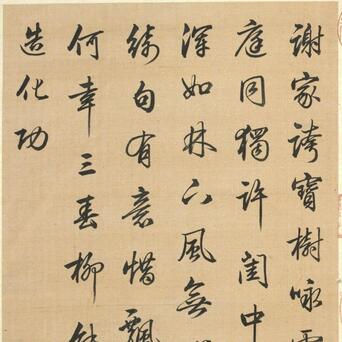 謝家誇寶樹咏
庭同獨許閨中
深如林下風無
綺句有意惜飄
何幸三春柳
造化功